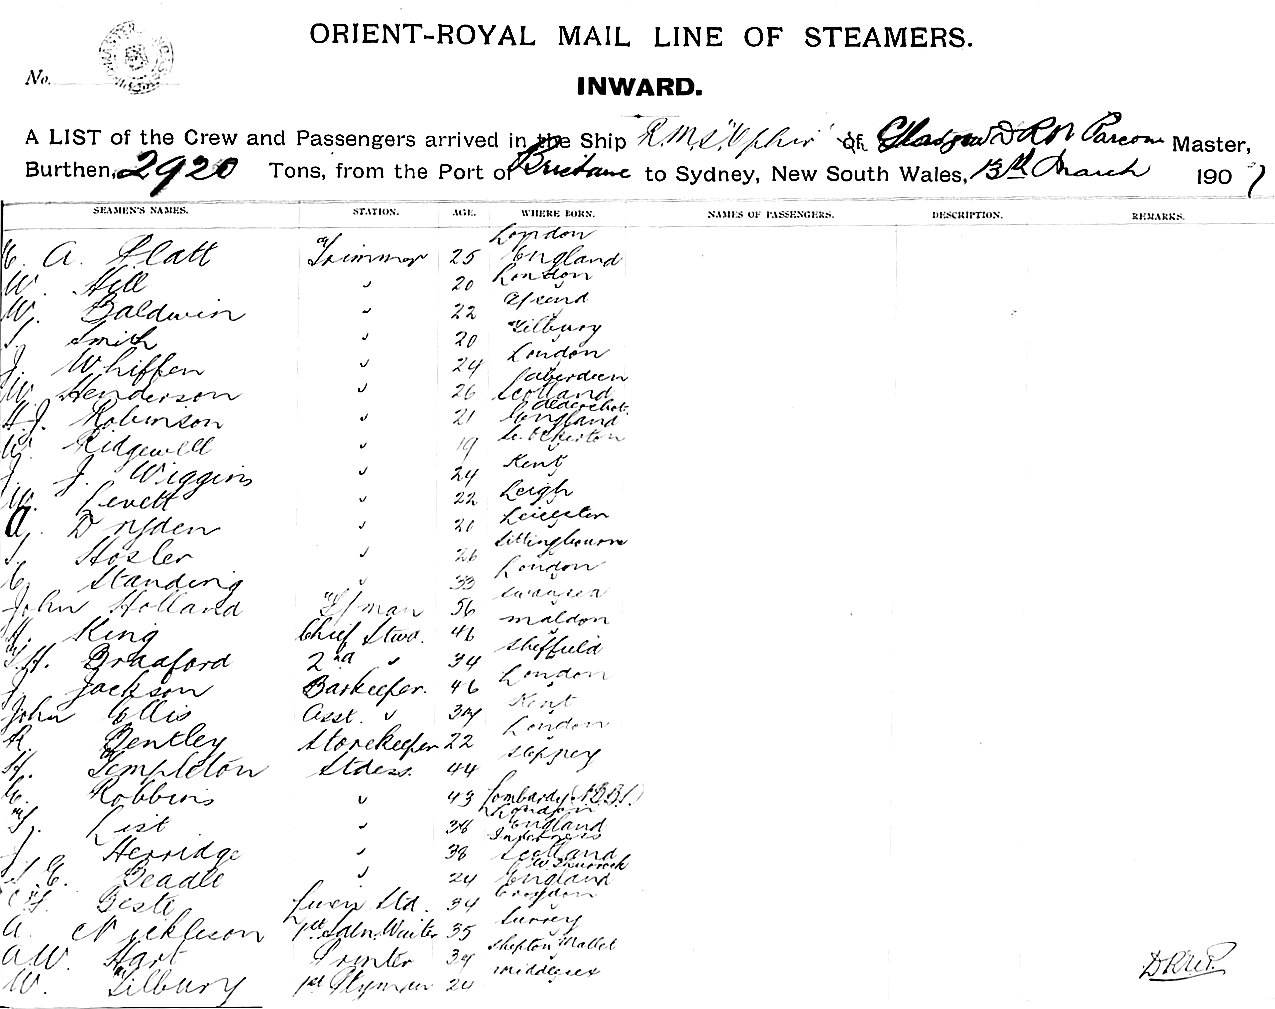 ORIENT-ROYAL MAIL LINE OF STEAMERS.
No.
INWARD.
A LIST of the Crew and Passengers arrived in the Ship R.M.S. "Ophir" of Glasgow D R N Parcom Master,
Burthen, 2920 Tons, from the Port of Brisbane to Sydney, New South Wales, 13th March 1907
SEAMEN'S NAMES. STATION. AGE. WHERE BORN. NAMES OF PASSENGERS. DESCRIPTION. REMARKS.
London
A. Platt Trimmer 25 England
W. Hill " 20 London
W. Baldwin " 22
Smith " 20 Tilbury
J. Whiffen " 24 London
Aberdeen
W. Henderson " 26 Scotland
Aldershot
H.J. Robinson " 21 England
W. Ridgewell " 19
J. J. Wiggins " 24 Kent
W. Levett " 22 Leigh
A. Dryden " 21 Leicester
Hosler " 26 Sittingbourne
C. Standing " 33 London
John Holland 56 Swansea
H. King Chief Stwd. 46 Maldon
H. Bradford 2nd " 34 Sheffield
J. Jackson Barkeeper. 46 London
John Ellis Asst. " 34 Kent
R. Bentley Storekeeper 22 London
H. Templeton Stdess. 44 Stepney
Robbins " 43 Lombardy
London
List " 38 England
Inverness
J. Herridge " 38 Scotland
W. Thurrock
E. Beadle " 24 England
Beste Linen Std. 34 Croydon
A. 1st Saln. Waiter 35 Surrey
A.W. Hart Printer 34 Shepton Mallet
W. Tilbury 1st 20 Middlesex